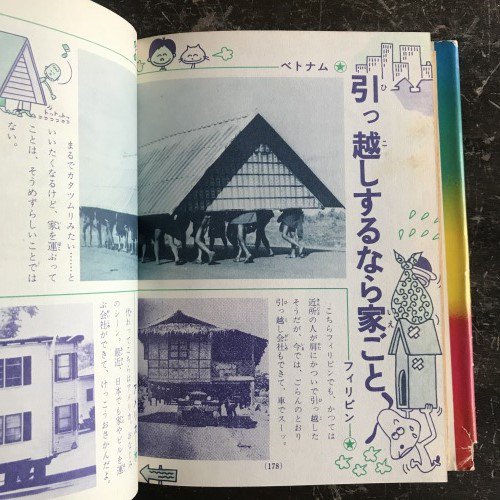 ベトナム
引っ越しするなら家ごと
フィリピン
まるでカタツムリみたい……と
いいたくなるけど、家を運ぶって
ことは、そうめずらしいことでは
ない。
こちらフィリピンでも、かつては
近所の人が肩にかついで引っ越した
そうだが、今では、ごらんのとおり
引っ越し会社もできて、車でスーッ。
最近、日本でも家やビルを運
ぶ会社ができて、けっこうおさかんだよ。
(178)